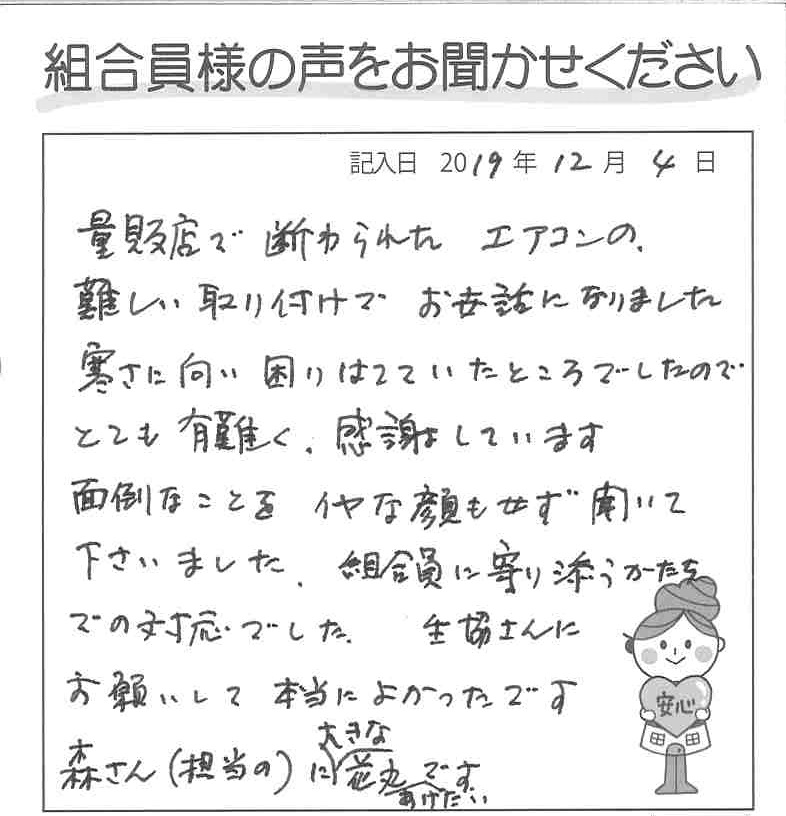 組合員様の声をお聞かせください
記入日 2019年 12月 4日
量販店で 断わられた エアコンの、
難しい 取り付けで お世話になりました
寒さに向い 困りはてていたところでしたので
とても 有難く、感謝しています
面倒なことを イヤな顔もせず 聞いて
下さいました、組合員に寄り添うかたち
での対応でした、 生協さんに
お願いして 本当によかったです
大きな
森さん(担当の)に花丸です
あげたい
安心